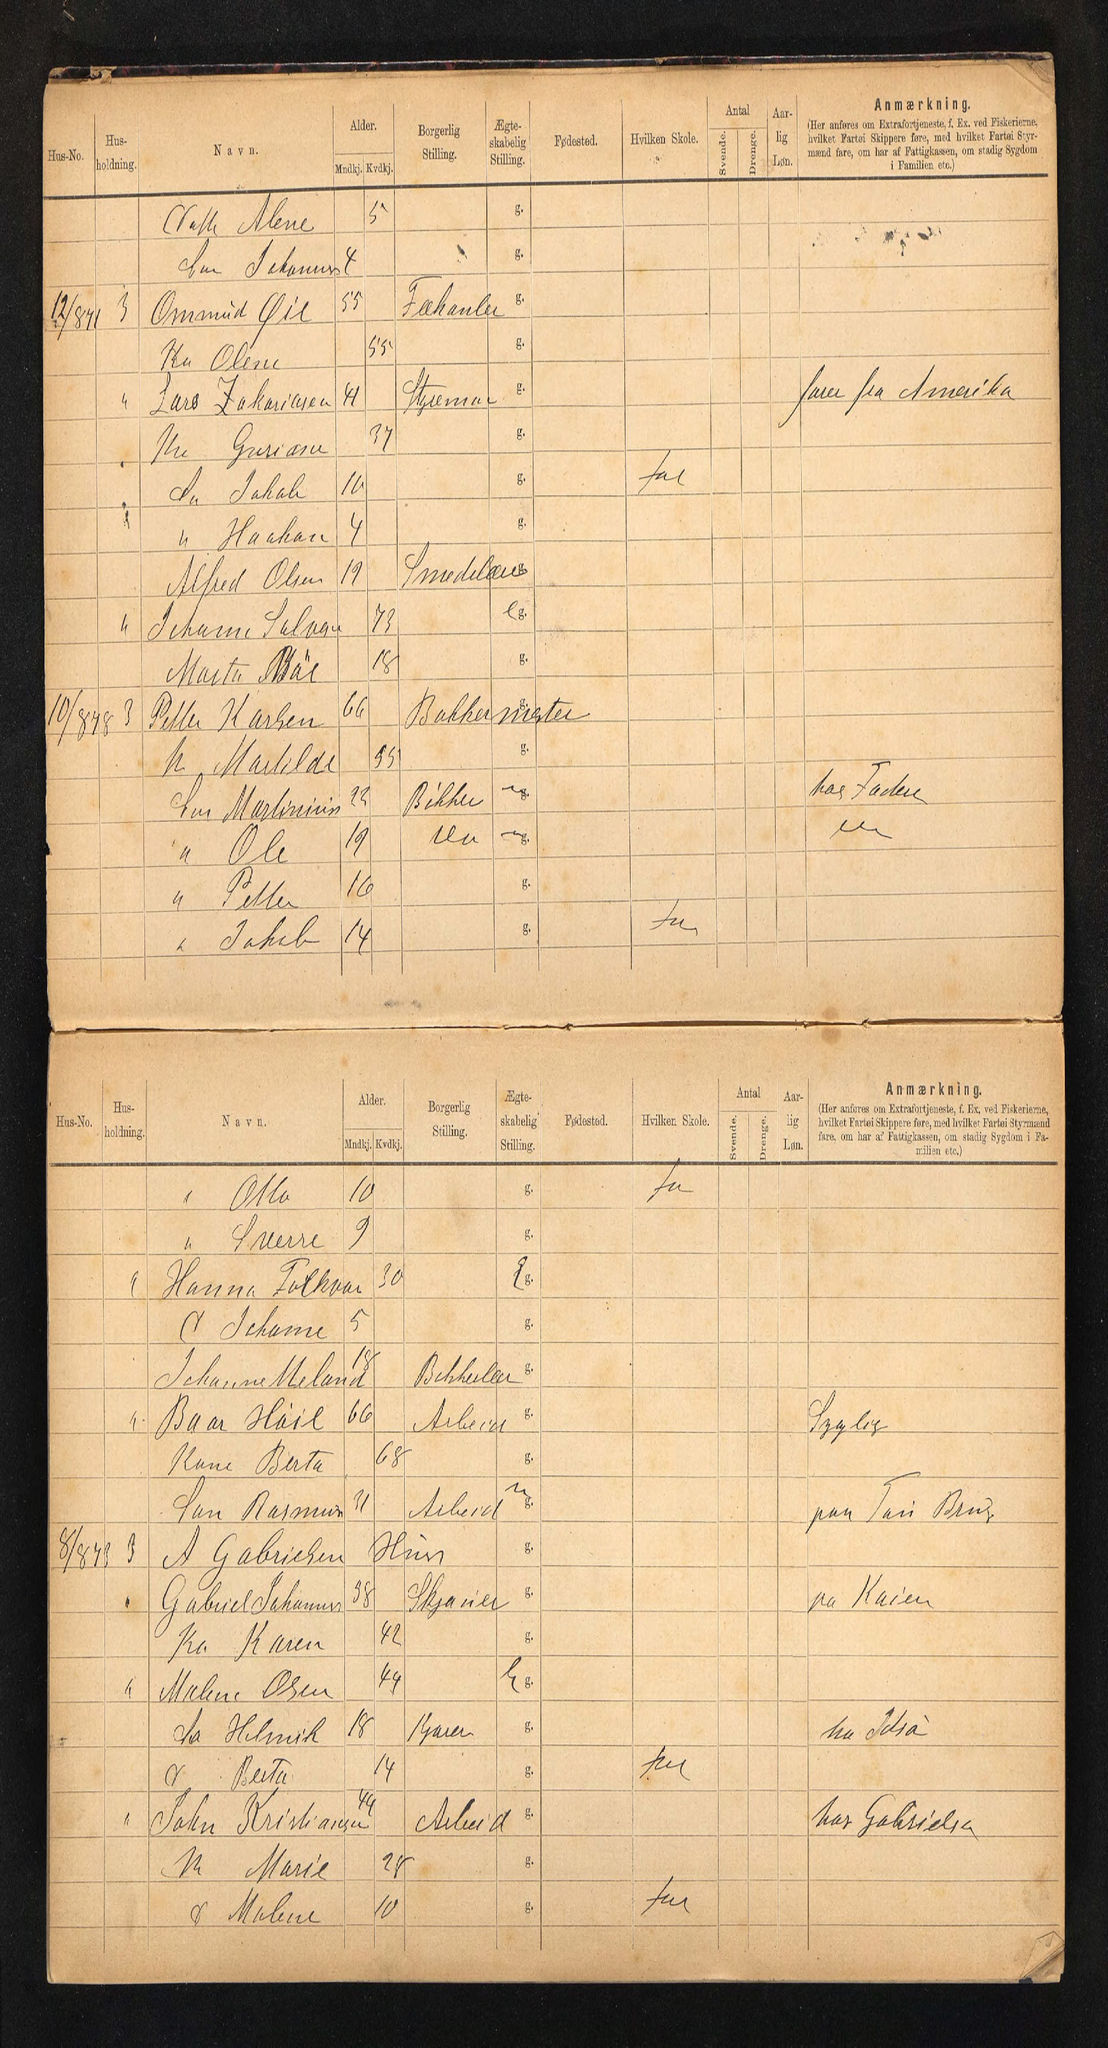 Hus-No. Hus-holdning. Navn. Alder. Mndkj. Kvdkj. Borgerlig Stilling. Ægte-skabelig Stilling. Fødested. Hvilken Skole. Antal Svende. Drenge. Aar-lig Løn. Anmærkning.
(Her anføres om Extrafortjeneste, f. Ex. ved Fiskerierne, hvilket Fartøi Skippere føre, med hvilket Fartøi Styrmænd fare, om har af Fattigkassen, om stadig Sygdom i Familien etc.)
Alene 5 g.
Søn Johannes 4 g.
12/871 3 Ommund Øie 55 g.
Ka Olene 55 g.
" Lars Zakariasen 41 Styrman g. farer fra Amerika
Ka 37 g.
Sø Jakob 10 g. fol
" Haakon 4 g.
Alfred Olsen 19 g.
" Johanne 73 e g.
Marta 18 g.
10/878 3 Petter Karlsen 66 Bøkkermester g.
K Martilde 55 g.
Søn Martinius 22 Bøkker u g. hos Faderen
" Ole 19 do u g. do
" Petter 16 g.
" Jakob 14 g. fol
Hus-No. Hus-holdning. Navn. Alder. Mndkj. Kvdkj. Borgerlig Stilling. Ægte-skabelig Stilling. Fødested. Hvilken Skole. Antal Svende. Drenge. Aar-lig Løn. Anmærkning.
(Her anføres om Extrafortjeneste, f. Ex. ved Fiskerierne, hvilket Fartøi Skippere føre, med hvilket Fartøi Styrmænd fare, om har af Fattigkassen, om stadig Sygdom i Familien etc.)
" Otto 10 g. fo
" Sverre 9 g.
" Hanna 30 g.
D Johanne 5 g.
Johanne Meland 18 g.
" Baar 66 Arbeid g. Syglig
Kone Berta 68 g.
Søn Rasmus 31 Arbeid u g. paa
8/873 3 A Gabrielsen Huus g.
" Gabriel Johannes 38 g. pa Kaien
Ka Karen 42 g.
" Malene Olsen 44 e g.
Sø Helmik 18 g.
D Berta 14 g. fol
" John Kristiansen 44 Arbeid g. hos Gabrielsen
K Marie 28 g.
D Malene 10 g. fol